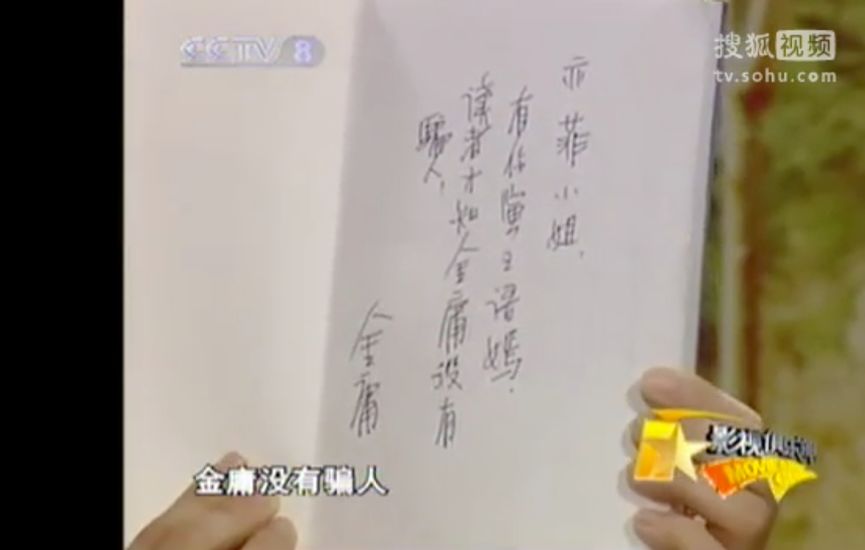 CCTV 8
搜狐视频
tv.sohu.com
亦菲小姐，
有你演王语嫣，
读者才知金庸没有
骗人，
金庸
金庸没有骗人
影视俱乐部